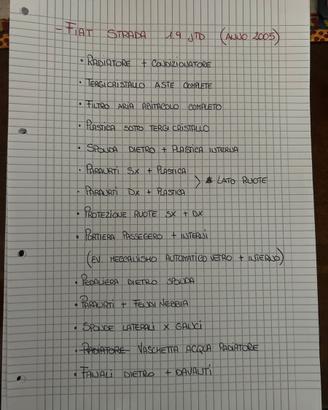 - FIAT STRADA 1.9 JTD (ANNO 2005)
• RADIATORE + CONDIZIONATORE
• TERGICRISTALLO ASTE COMPLETE
• FILTRO ARIA ABITACOLO COMPLETO
• PLASTICA SOTTO TERGICRISTALLO
• SPONDA DIETRO + PLASTICA INTERNA
• PARAURTI SX + PLASTICA
> LATO RUOTE
• PARAURTI DX + PLASTICA
• PROTEZIONE RUOTE SX + DX
• PORTIERA PASSEGERO + INTERNI
(EV. MECCANISMO AUTOMATICO VETRO + INTERNO)
• PEDALIERA DIETRO SPONDA
• PARAURTI + FENDINEBBIA
• SPONDE LATERALI X GANCI
• RADIATORE VASCHETTA ACQUA RADIATORE
• FANALI DIETRO + DAVANTI